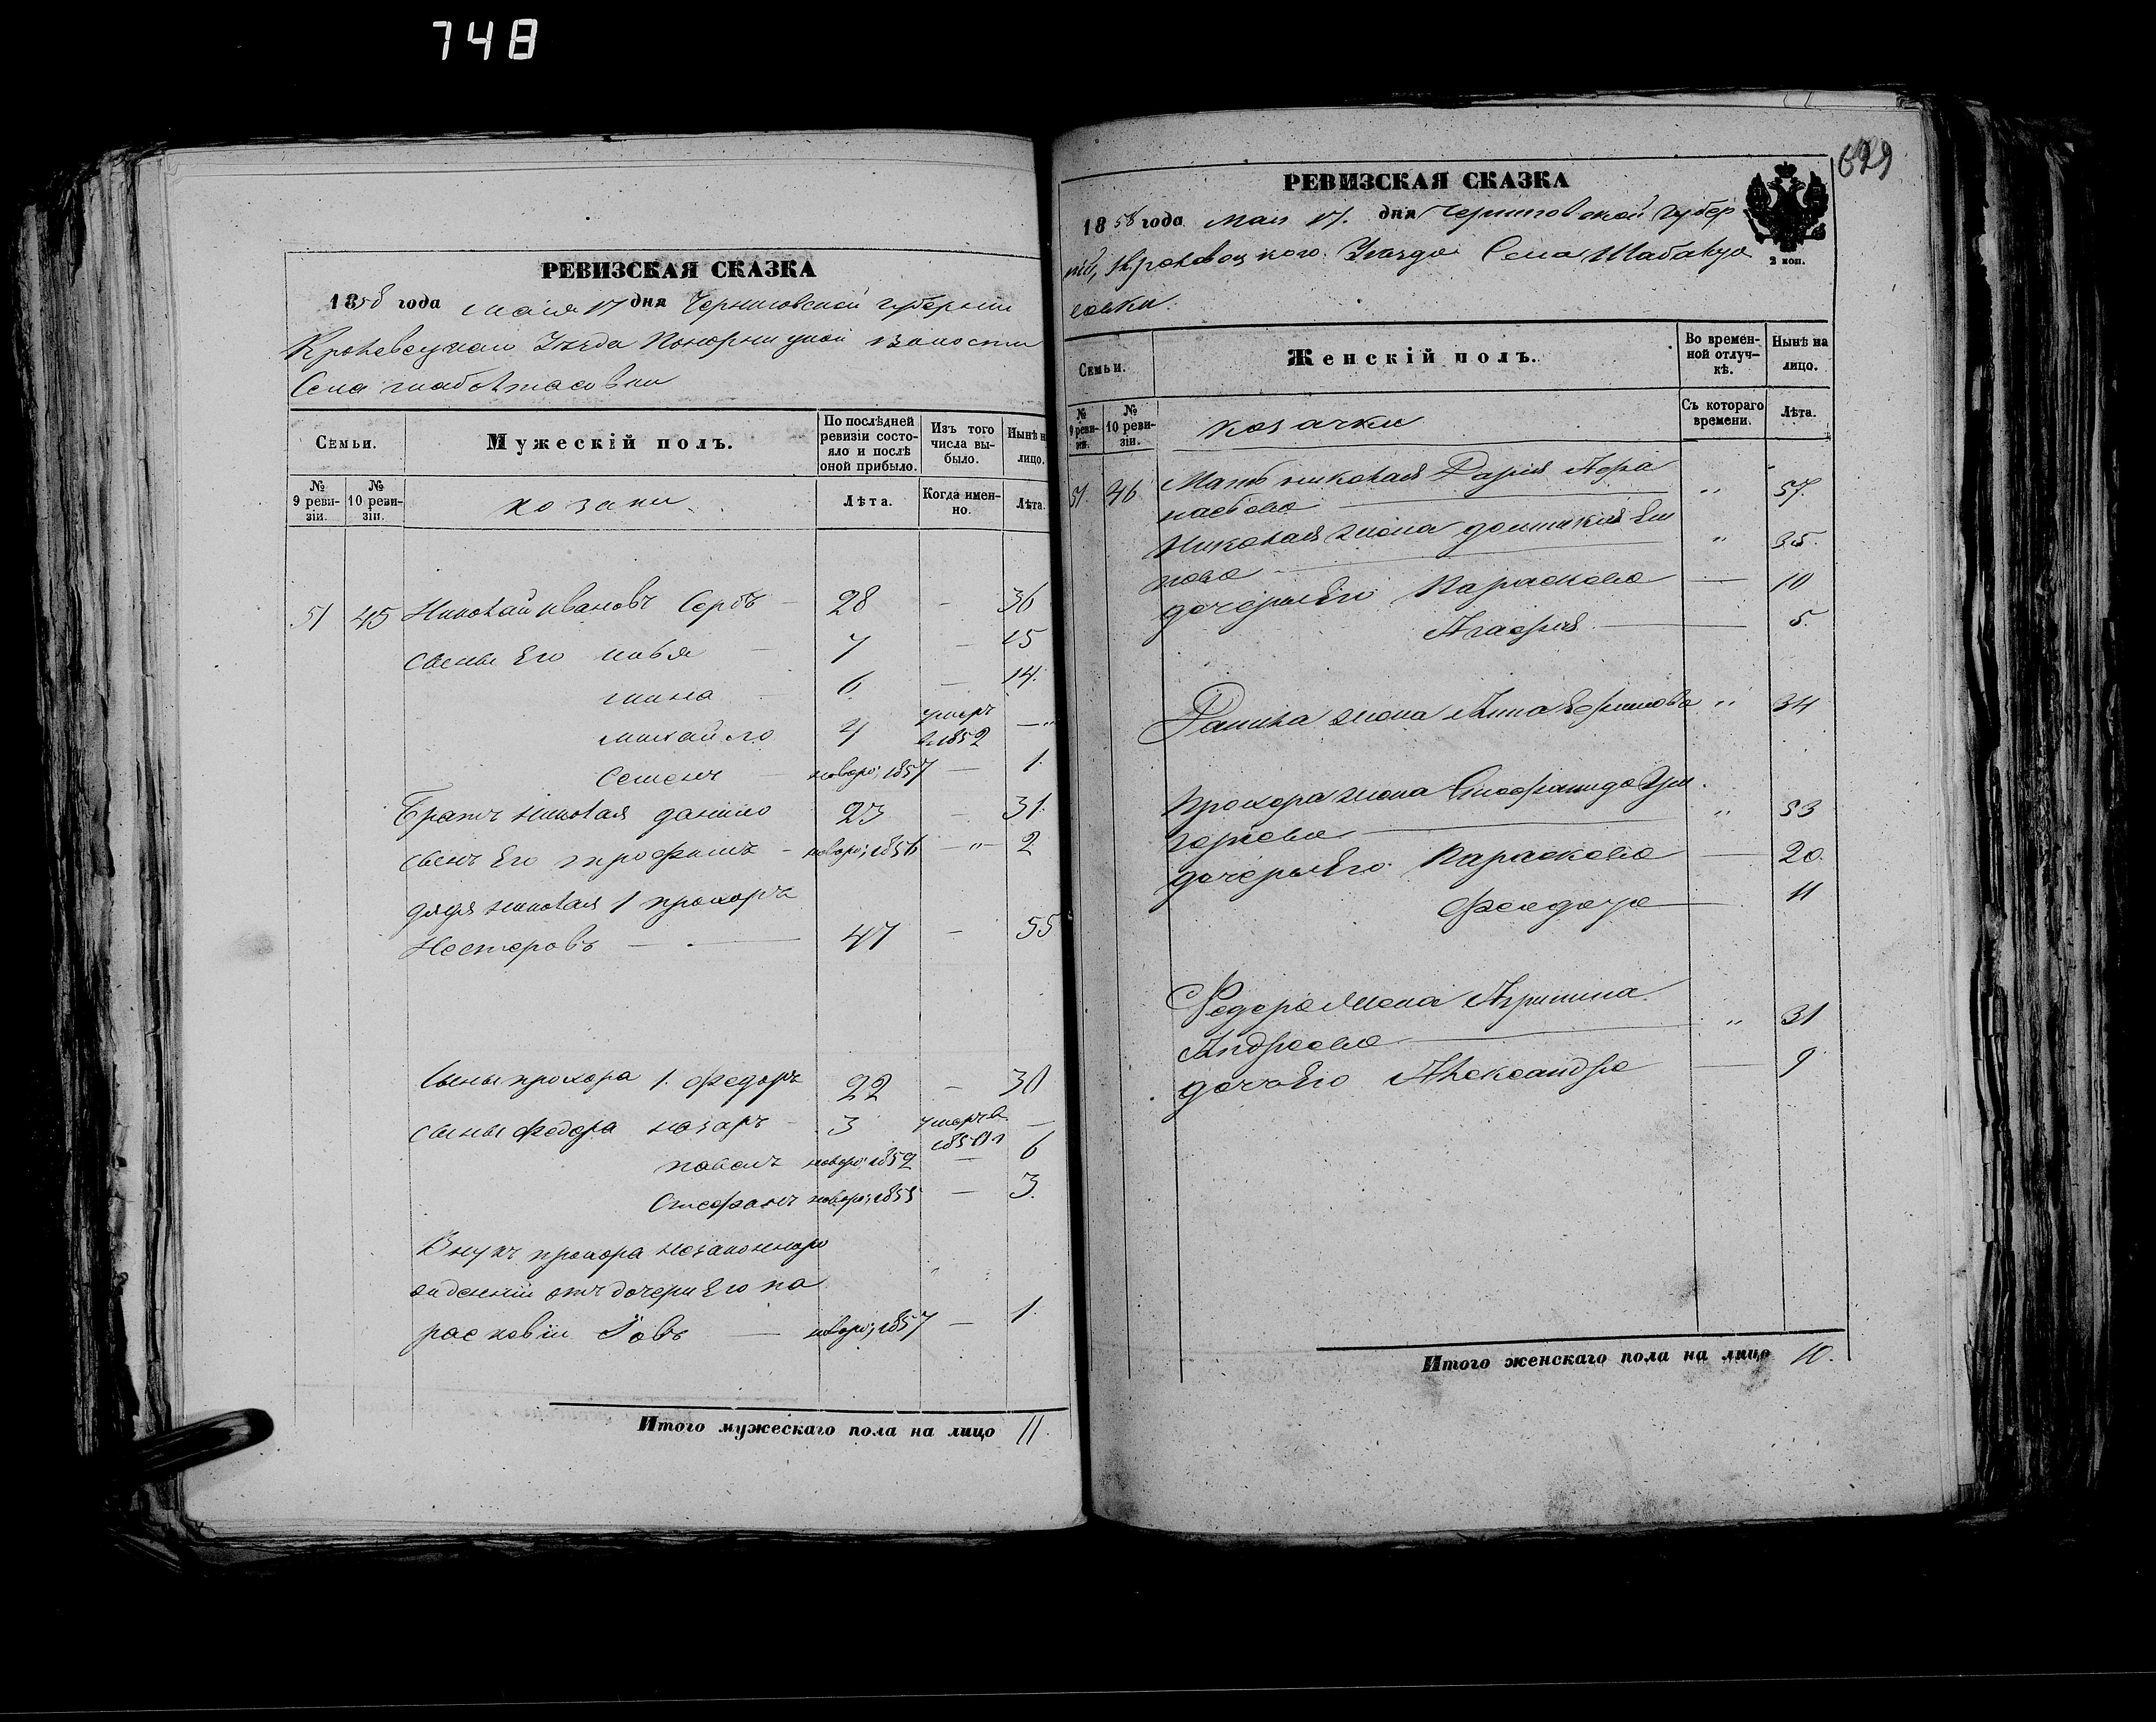 748
РЕВИЗСКАЯ СКАЗКА
1858 года маія 17 дня Черниговской губерніи
Кролевецкаго Уезда Понорницкой волости
Села
Семьи.
Мужескій полъ.
По послѣдней ревизіи состояло и послѣ оной прибыло.
Изъ того числа выбыло.
Нынѣ н лицо.
№ 9 ревизіи.
№ 10 ревизіи.
козаки
Лѣта.
Когда именно.
Лѣта.
51 45 Николай Ивановъ Сербъ - 28 - 36
сыны Его - 7 - 15
- 6 - 14.
Михайло 4 умеръ в 1852 - "
Семенъ - новоро; 1857 - 1.
Братъ николая данило 23 - 31.
сынъ Его трофимъ - новоро; 1856 - " - 2
дядя николая 1 прохоръ
Нестеровъ - 47 - 55
Сыны прохора 1. федоръ 22 - 30
сыны федора назаръ - 3 умеръ в. -
павелъ новоро; 1852 - 6
Стефанъ новоро; 1855 - 3.
Внукъ прохора незаконноро
жденній отъ дочери Его па
расковіи Іовъ - новоро; 1857 - 1.
Итого мужескаго пола на лицо 11.
699
РЕВИЗСКАЯ СКАЗКА
1858 года мая 17. дня Черниговской губер
ніи, Кролевецкого Уезда Села Шабалтсо
совки.
2 коп.
Семьи.
Женскій полъ.
Во временной отлучкѣ.
Нынѣ на лицо.
№ 9 ревизіи.
№ 10 ревизіи.
козачки
Съ котораго времени.
Лѣта.
51. 46 Мать николая Дарія Афа
насьева - " 57.
Николая жена домникія
- " 35.
дочеры Его Параскева - 10
Агафія - 5.
Данила жена Анна Ефимова " 34
Прохора жена Стефанида Гри
горіева - " 53
дочеры Его Параскева - 20.
Феодора - 11
Федора жена Агрипина
Андреева - " 31
дочь Его Александра - 9
Итого женскаго пола на лицо 10.